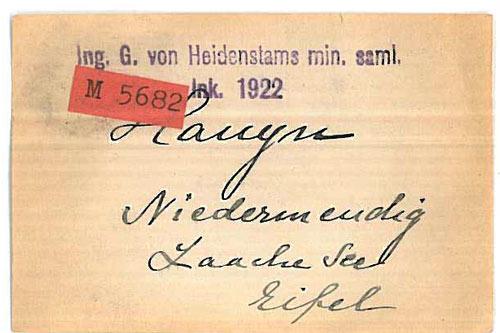 Ing. G. von Heidenstams min. saml.
M 5682 Ink. 1922
Hauyn
Niedermendig
Laache See
Eifel